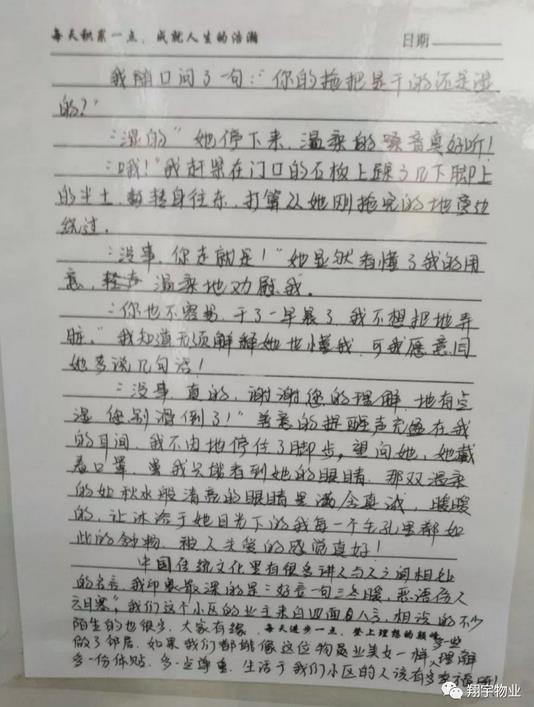 每天积累一点，成就人生的浩瀚 日期
我随口问了一句："你的拖把是干的还是湿
的？"
"湿的"她停下来，温柔的嗓音真好听！
"哦！"我赶紧在门口的石板上跺了几下脚上
的半土，转身往东，打算从她刚拖完的地旁边
绕过。
"没事，你走就是！"她显然看懂了我的用
意，温柔地劝慰我。
"你也不容易，干了一早晨了，我不想把地弄
脏。"我知道无须解释她也懂我，可我愿意同
她多说几句话！
"没事，真的，谢谢您的理解，地有点
湿您别滑倒了！"善意的提醒声充盈在我
的耳间，我不由地停住了脚步，望向她，她戴
着口罩，我只能看到她的眼睛，那双温柔
的如秋水般清亮的眼睛里满含真诚，暖暖
的，让沐浴于她目光下的我每一个毛孔里都如
此的舒畅，被人关爱的感觉真好！
中国传统文化里有很多讲人与人之间相处
的名言，我印象最深的是：好言一句三冬暖，恶语伤人
六月寒"，我们这个小区的业主来自四面八方，相识的不少
陌生的也很多，大家有缘
每天进步一点，登上理想的巅峰
做了邻居，如果我们都能像这位物业美女一样，多些理解
多一份体贴，多一点尊重，生活于我们小区的人该有多幸福啊！
翔宇物业